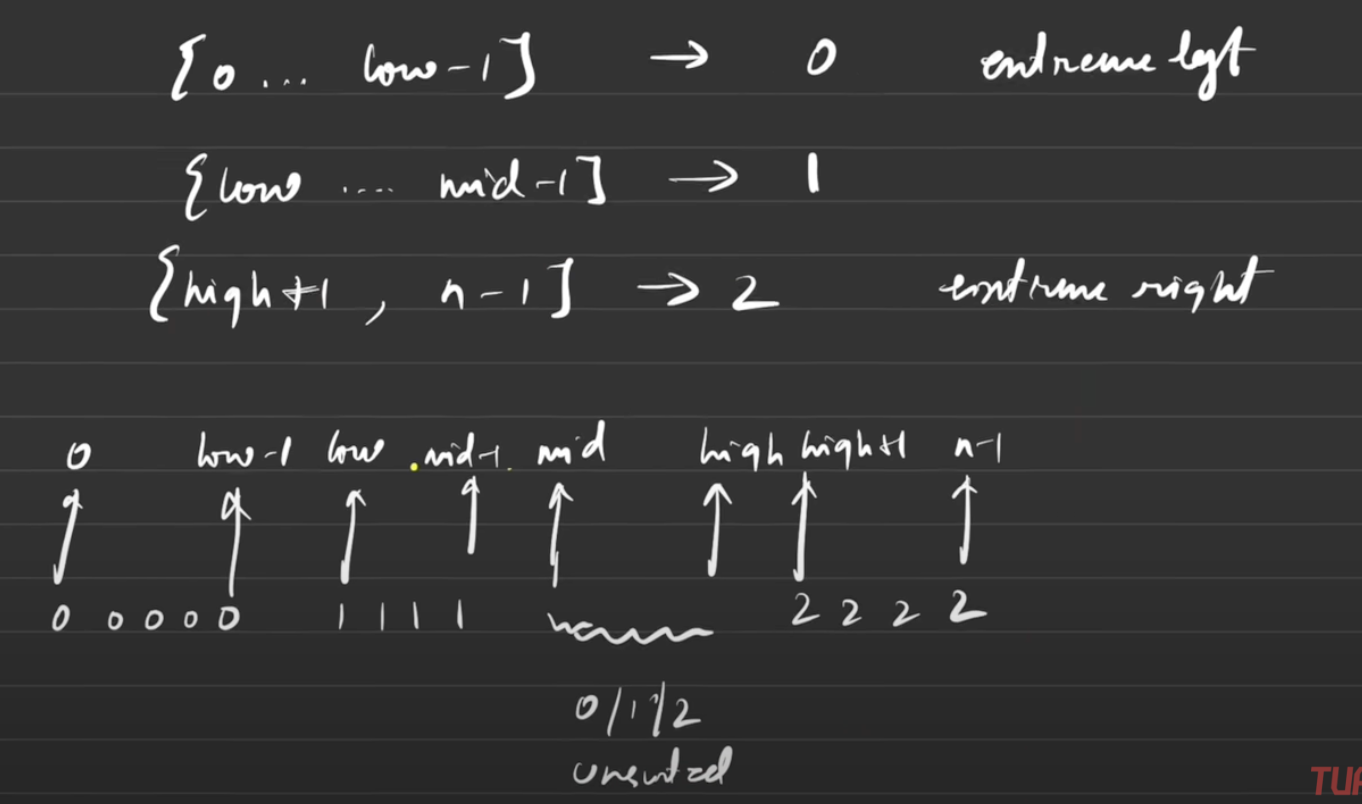 [0 ... low-1] → 0 extreme left
[low .... mid-1] → 1
[high+1 , n-1] → 2 extreme right
0 low-1 low mid-1 mid high high+1 n-1
0 0 0 0 0 1 1 1 1 2 2 2 2
0/1/2
unsorted
TUF